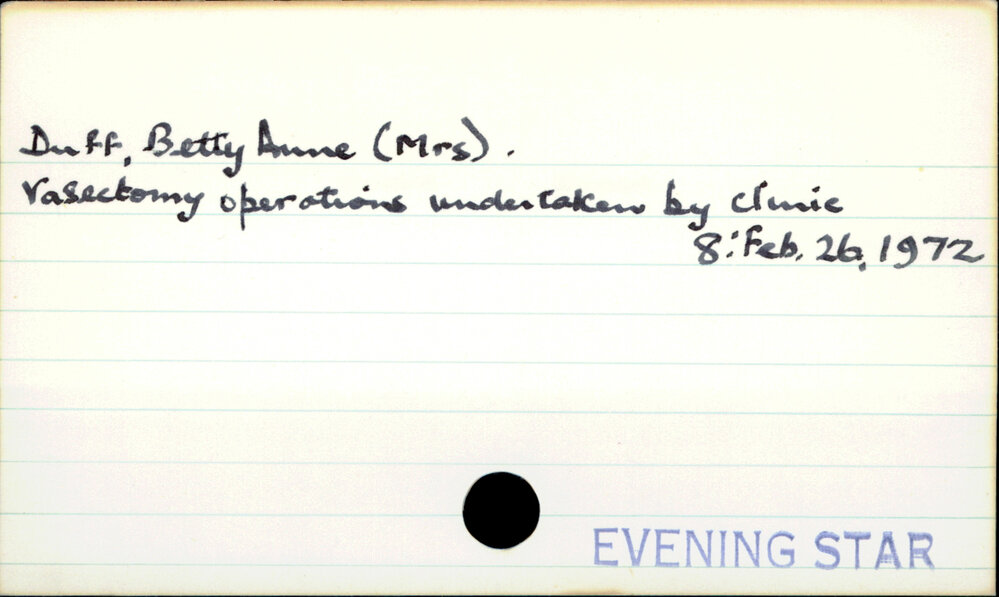 Duff, Betty Anne (Mrs).
Vasectomy operations undertaken by clinic
8: Feb. 26, 1972
EVENING STAR